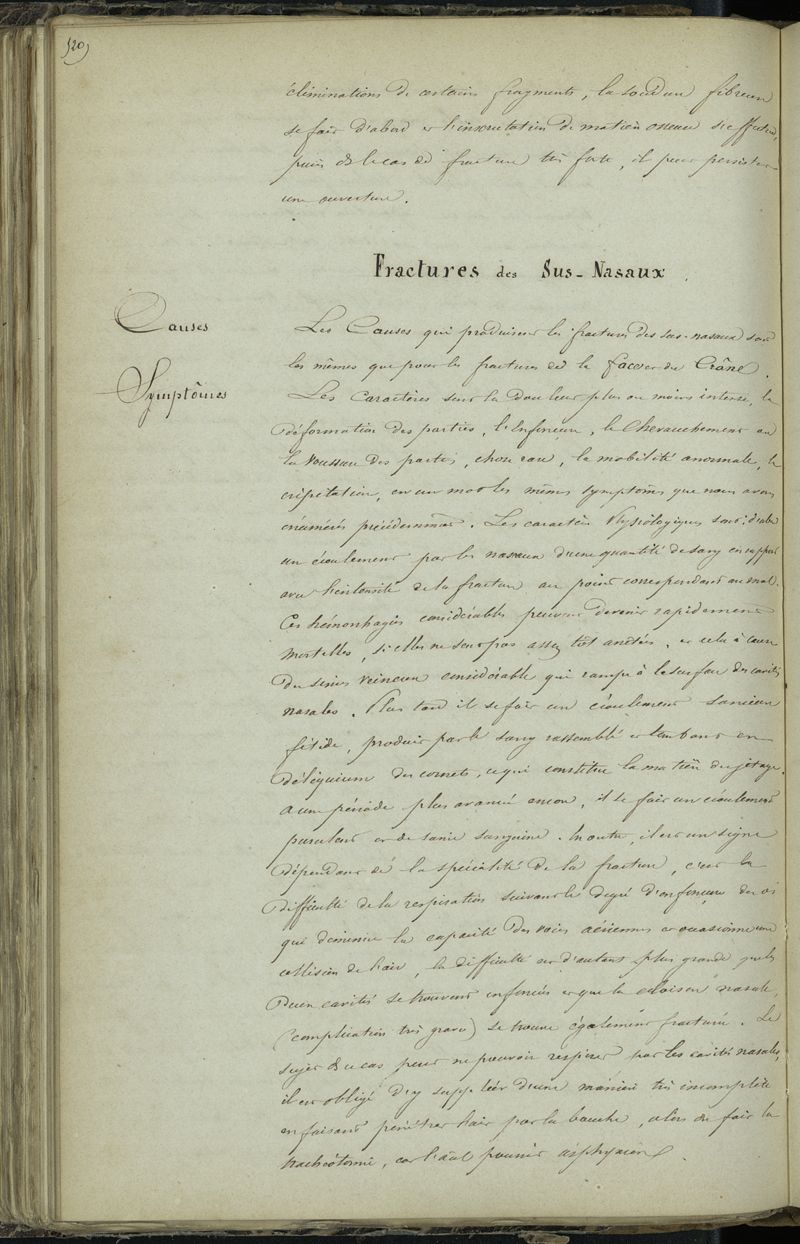 120)
éliminations de certains fragments, la soudure fibreuse
se fait d'abord et l'incrustation de matière osseuse s'effectue,
puis ds le cas de fracture très forte, il peut persister
une ouverture.
Fractures des Sus-Nasaux
Causes
Les Causes qui produisent les fractures des sus-nasaux sont
les mêmes que pour les fractures de la face et du Crâne.
Symptômes
Les Caractères sont la douleur plus ou moins intense, la
déformation des parties, l'Enfonçure, le Chevauchement ou
la voussure des parties, chose rare, la mobilité anormale, la
crépitation, en un mot les mêmes symptômes que nous avons
énumérés précédemment. Les caractères Physiologiques sont: d'abord
un écoulement par les naseaux d'une quantité de sang en rapport
avec l'intensité de la fracture au point correspondant au mal.
Ces hémorrhagies considérables peuvent devenir rapidement
Mortelles, si elles ne sont pas assez tôt arrêtées, et cela à cause
du sinus veineux considérable qui rampe à la surface des cavités
nasales. Plus tard il se fait un écoulement sanieux
fétide, produit par le sang rassemblé et tombant en
déliquium des cornets, ce qui constitue la matière du jetage.
A une période plus avancée encore, il se fait un écoulement
purulent et de sanie sanguine. En outre, il est un signe
dépendant de la spécialité de la fracture, c'est la
difficulté de la respiration suivant le degré d'enfonçure des os
qui diminue la capacité des voies aériennes et occasionne une
collision de l'air, la difficulté est d'autant plus grande que les
deux cavités se trouvent enfoncées et que la cloison nasale,
(complication très grave) se trouve également fracturée. Le
sujet ds ce cas peut ne pouvoir respirer par les cavités nasales,
il est obligé d'y suppléer d'une manière très incomplète
en faisant pénétrer l'air par la bouche, alors on fait la
trachéotomie, car l'aût pourrait asphyxier.